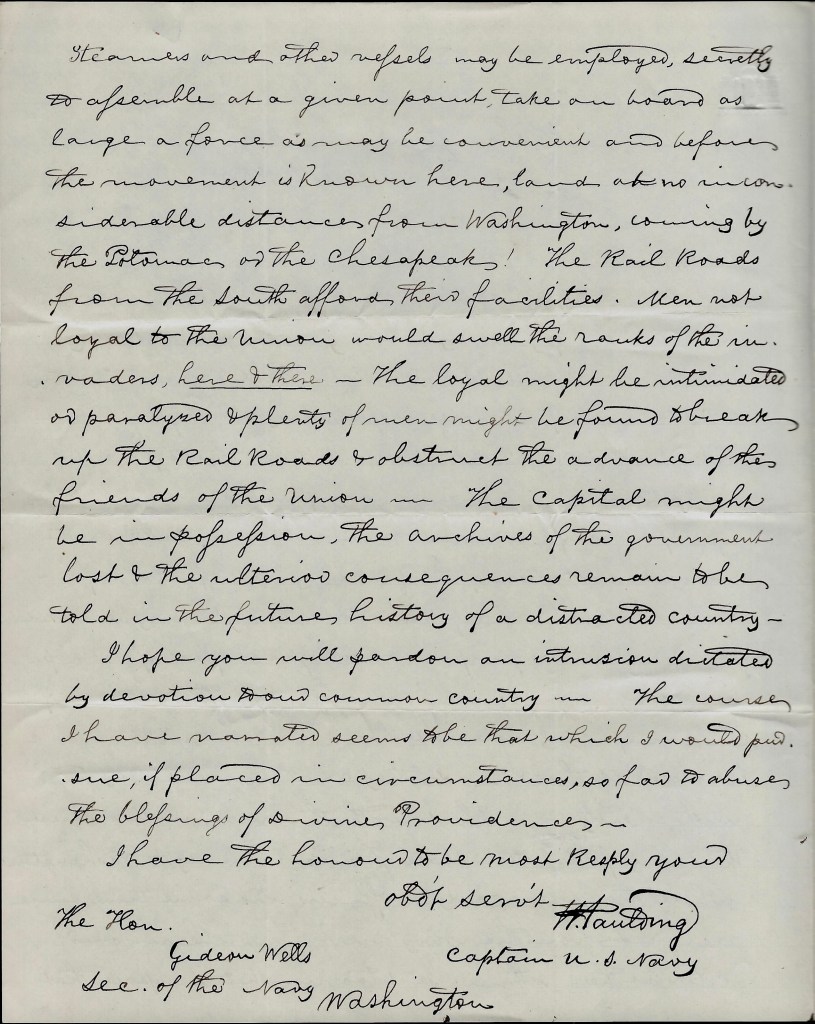 Steamers and other vessels may be employed, secretly
to assemble at a given point, take on board as
large a force as may be convenient and before
the movement is Known here, land at no incon-
siderable distances from Washington, coming by
the Potomac or the Chesapeake! The Rail Roads
from the South afford their facilities. Men not
loyal to the Union would swell the ranks of the in-
vaders, here & there — The loyal might be intimidated
or paralyzed & plenty of men might be found to break
up the Rail Roads & obstruct the advance of the
friends of the Union — The Capital might
be in possession, the archives of the government
lost & the ulterior consequences remain to be
told in the future history of a distracted country —
I hope you will pardon an intrusion dictated
by devotion to our common country — The course
I have narrated seems to be that which I would pur-
sue, if placed in circumstances, so far to abuse
the blessings of Divine Providence —
I have the honour to be most Resply your
obdt servt
W. Paulding
Captain U. S. Navy
The Hon.
Gideon Wells
Sec. of the Navy
Washington